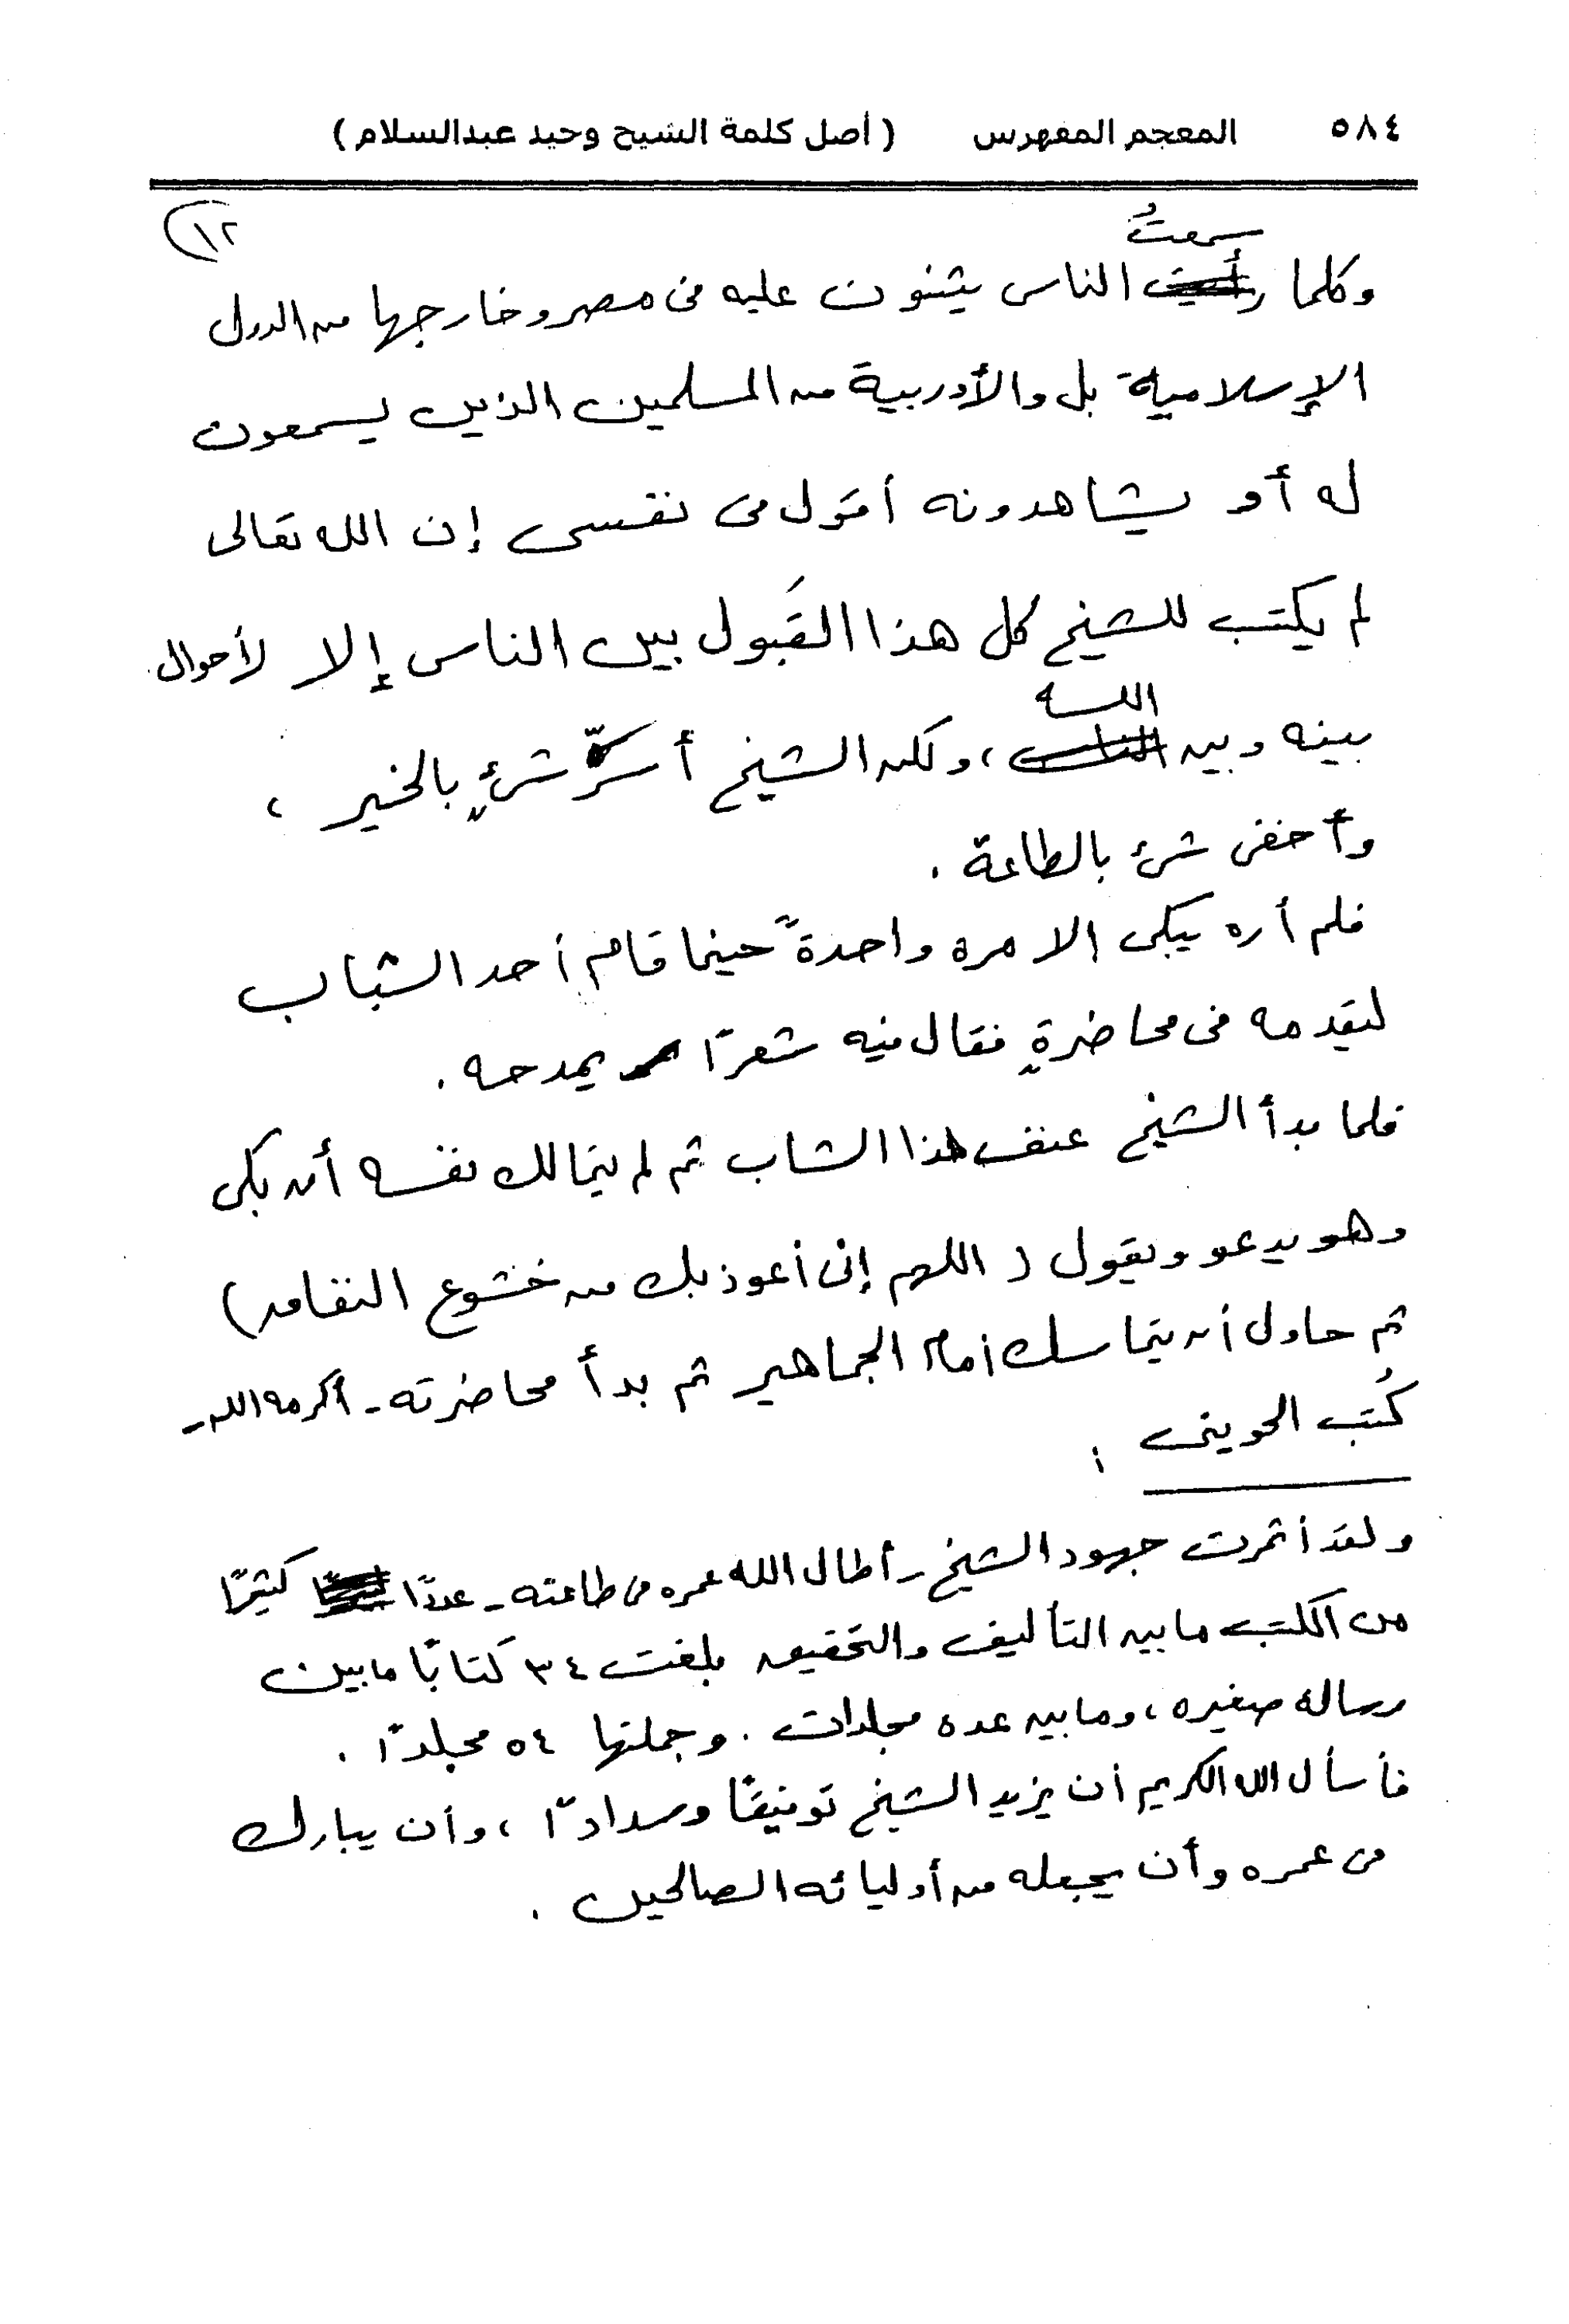 ٥٨٤ المعجم المفهرس (أصل كلمة الشيخ وحيد عبدالسلام)
١٢
سمعتُ
وكلما رأيت الناس يثنون عليه فى مصر وخارجها من الدول
الإسلامية بل والأوربية من المسلمين الذين يسمعون
له أو يشاهدونه أقول فى نفسى إن الله تعالى
لم يكتب للشيخ كل هذا القَبول بين الناس إلا لأحوال
الله
بينه وبين الناس، ولكن الشيخ أسرّ شئٍ بالخير ،
وأخفى شئ بالطاعة .
فلم أره يبكى الا مرة واحدةً حينما قام أحد الشباب
ليقدمه فى محاضرةٍ فقال فيه شعرًا يمدحه .
فلما بدأ الشيخ عنف هذا الشاب ثم لم يتمالك نفسه أن بكى
وهو يدعو ويقول ( اللهم إنى أعوذ بك من خشوع النفاق )
ثم حاول أن يتماسك أمام الجماهير ثم بدأ محاضرته - أكرمه الله -
كُتب الحوينى :
ولقد أثمرت جهود الشيخ - أطال الله عمره فى طاعته - عددًا كثيرًا
من الكتب ما بين التأليف والتحقيق بلغت ٣٤ كتابًا ما بين
رساله صغيره ، وما بين عده مجلدات . وجملتها ٥٤ مجلدًا .
فأسأل الله الكريم أن يزيد الشيخ توفيقًا وسدادًا ، وأن يبارك
فى عمره وأن يجعله من أوليائه الصالحين .